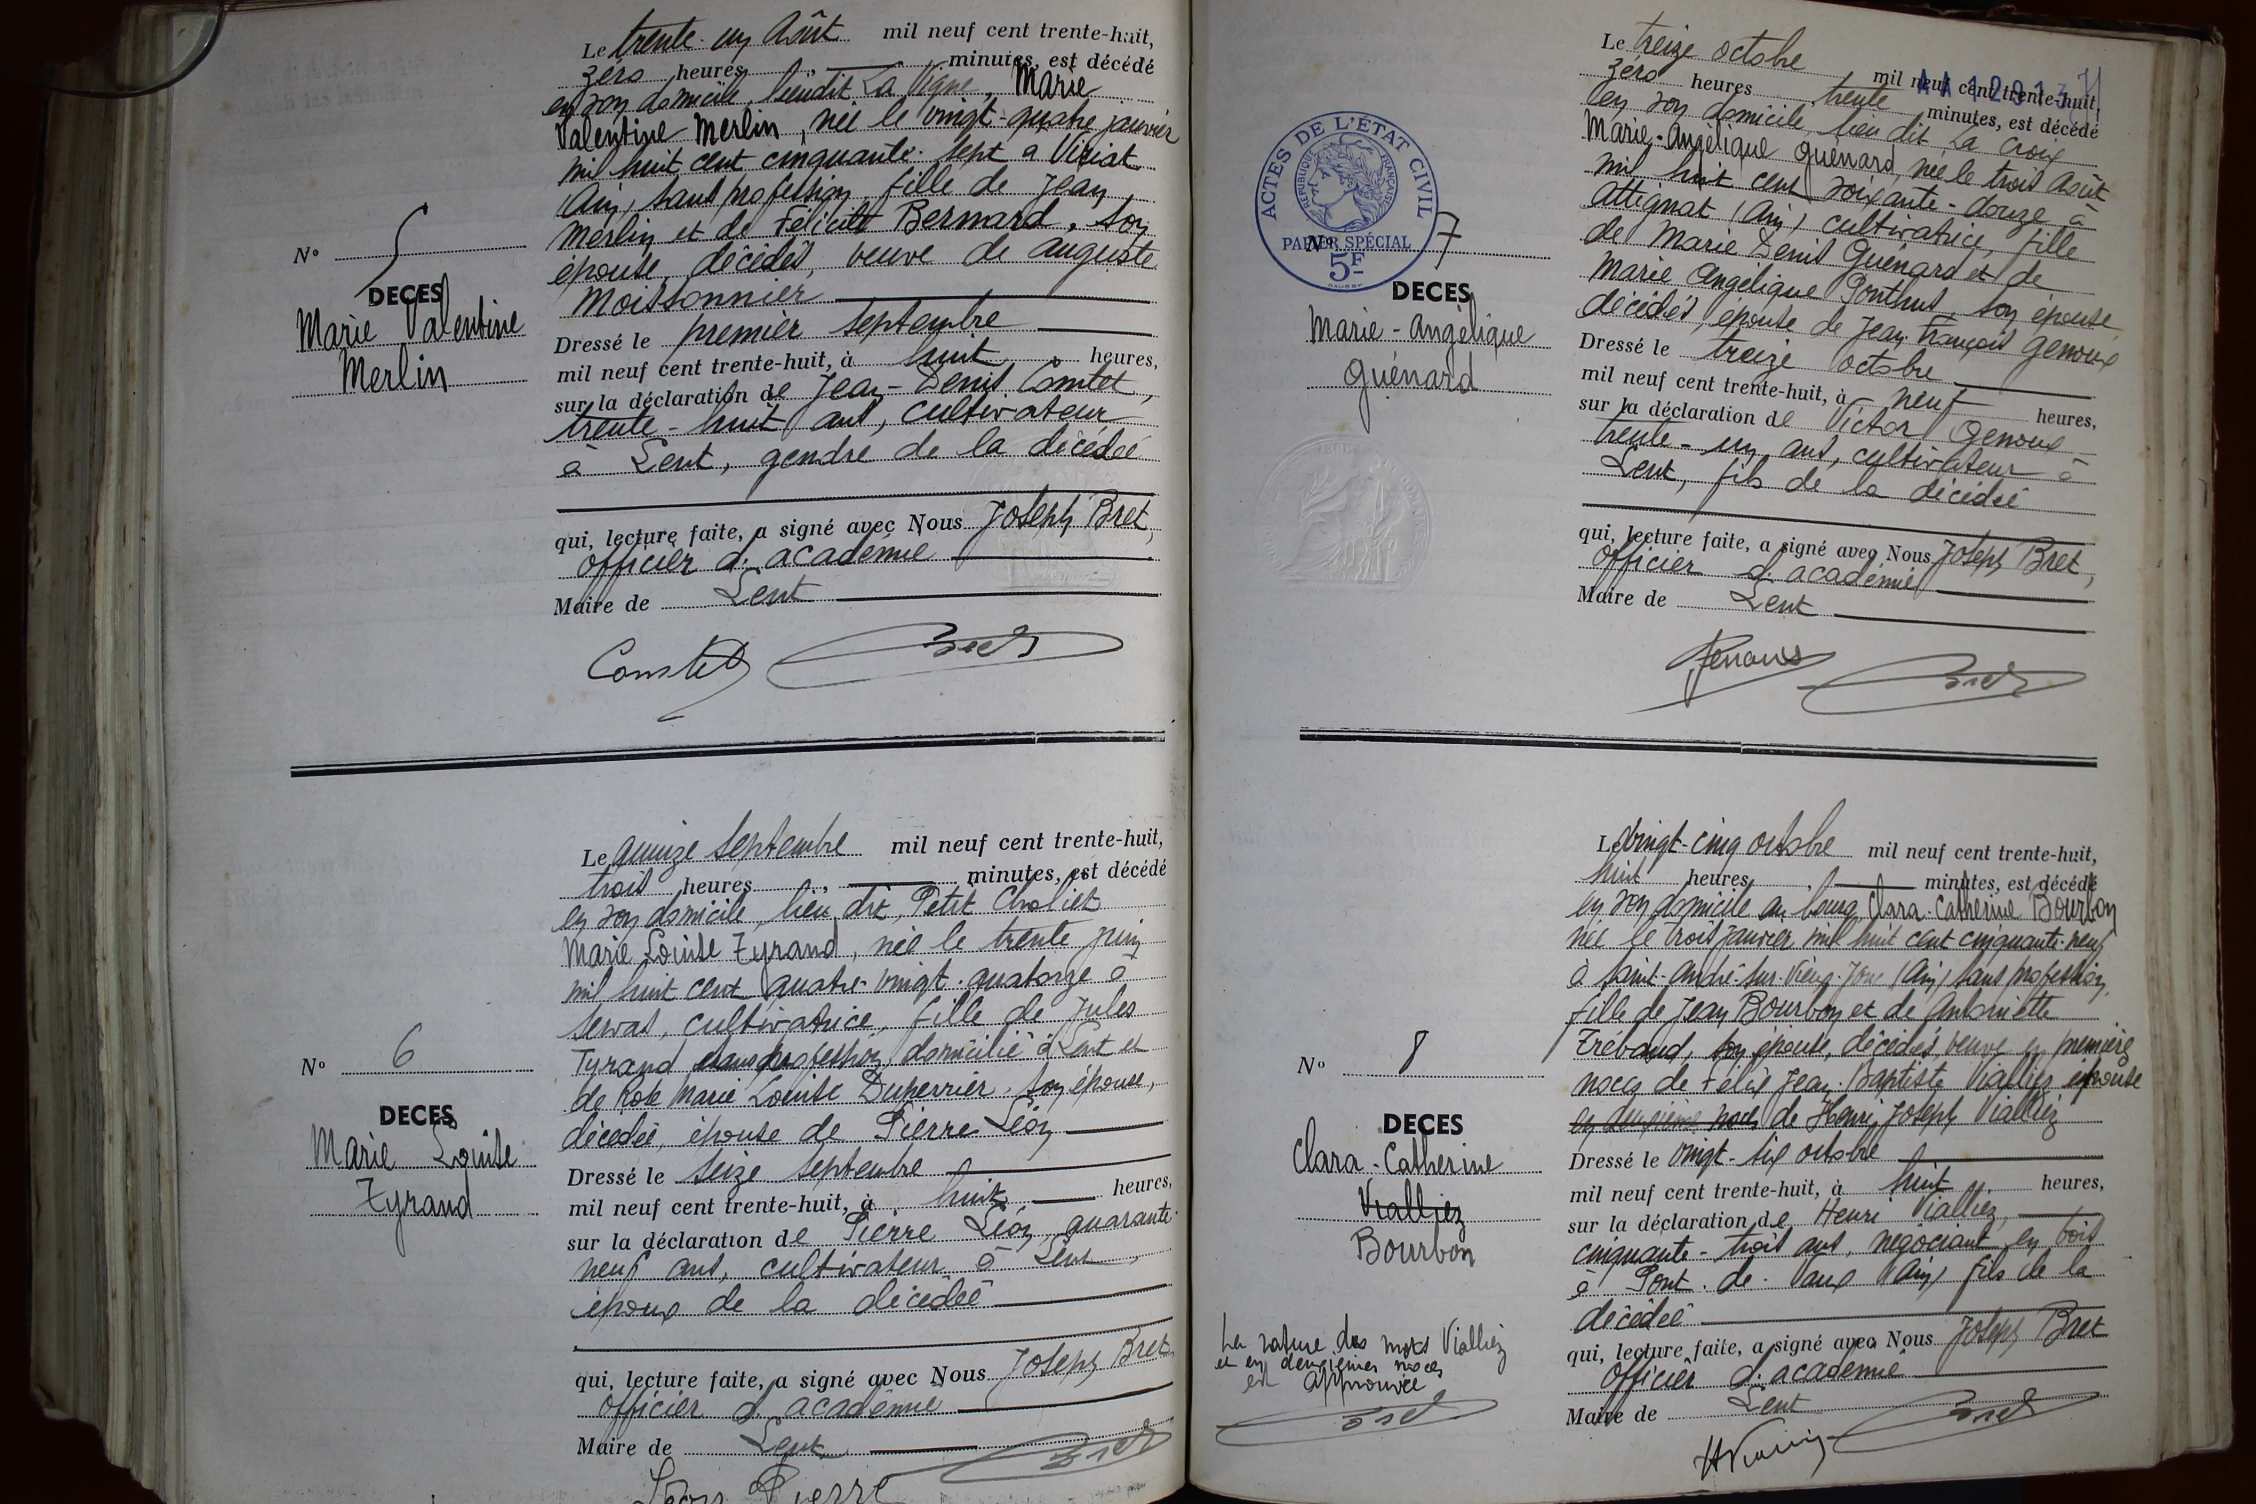 Le trente-un Août mil neuf cent trente-huit,
zéro heures, minutes, est décédé
en son domicile, lieudit La Vigne, Marie
Valentine Merlin, née le vingt-quatre janvier
mil huit cent cinquante-sept à Viriat
(Ain), sans profession, fille de Jean
Merlin et de Félicité Bernard, son
épouse, décédés, veuve de auguste
Moissonnier
Dressé le premier septembre
mil neuf cent trente-huit, à huit heures,
sur la déclaration de Jean-Denis Comtet,
trente-huit ans, cultivateur
à Lent, gendre de la décédée
qui, lecture faite, a signé avec Nous Joseph Bret,
officier d'académie
Maire de Lent
Comtet Bret
N° 5
DECES
Marie Valentine
Merlin
Le quinze septembre mil neuf cent trente-huit,
trois heures, minutes, est décédé
en son domicile, lieu dit, Petit Choliet
Marie Louise Tyrand, née le trente juin
mil huit cent quatre-vingt-quatorze à
Servas, cultivatrice, fille de Jules
Tyrand sans profession domicilié à Lent et
de Rose Marie Louise Duperrier, son épouse,
décédée, épouse de Pierre Léon
Dressé le seize septembre
mil neuf cent trente-huit, à huit heures,
sur la déclaration de Pierre Léon, quarante-
neuf ans, cultivateur à Lent,
époux de la décédée
qui, lecture faite, a signé avec Nous Joseph Bret
officier d'académie
Maire de Lent
Bret
Léon Pierre
N° 6
DECES
Marie Louise
Tyrand
Le treize octobre mil neuf cent trente-huit,
zéro heures trente minutes, est décédé
en son domicile, lieu dit La Croix
Marie-Angélique Guénard, née le trois Août
mil huit cent soixante-douze à
Attignat (Ain) cultivatrice, fille
de Marie Denis Guénard et de
Marie Angélique Ponthus, son épouse
décédés, épouse de Jean François Genoux
Dressé le treize octobre
mil neuf cent trente-huit, à neuf heures,
sur la déclaration de Victor Genoux
trente-un ans, cultivateur à
Lent, fils de la décédée
qui, lecture faite, a signé avec Nous Joseph Bret,
officier d'académie
Maire de Lent
Genoux Bret
ACTES DE L'ÉTAT CIVIL
RÉPUBLIQUE FRANÇAISE
PAPIER SPÉCIAL
5F
N° 7
DECES
Marie-Angélique
Guénard
Le vingt-cinq octobre mil neuf cent trente-huit,
huit heures, minutes, est décédé
en son domicile au bourg Clara-Catherine Bourbon
née le trois janvier mil huit cent cinquante-neuf
à Saint-André-sur-Vieux-Jonc (Ain) sans profession,
fille de Jean Bourbon et de Antoinette
Trebaud, son épouse, décédés, veuve en première
noces de Félix Jean-Baptiste Vialliez épouse
en deuxième noces de Henri Joseph Vialliez
Dressé le vingt-six octobre
mil neuf cent trente-huit, à huit heures,
sur la déclaration de Henri Vialliez,
cinquante-trois ans, négociant en bois
à Pont-de-Vaux (Ain) fils de la
décédée
qui, lecture faite, a signé avec Nous Joseph Bret
officier d'académie
Maire de Lent
Bret
N° 8
DECES
Clara-Catherine
Vialliez
Bourbon
La rature des mots Vialliez
et en deuxièmes noces
est approuvée
Bret